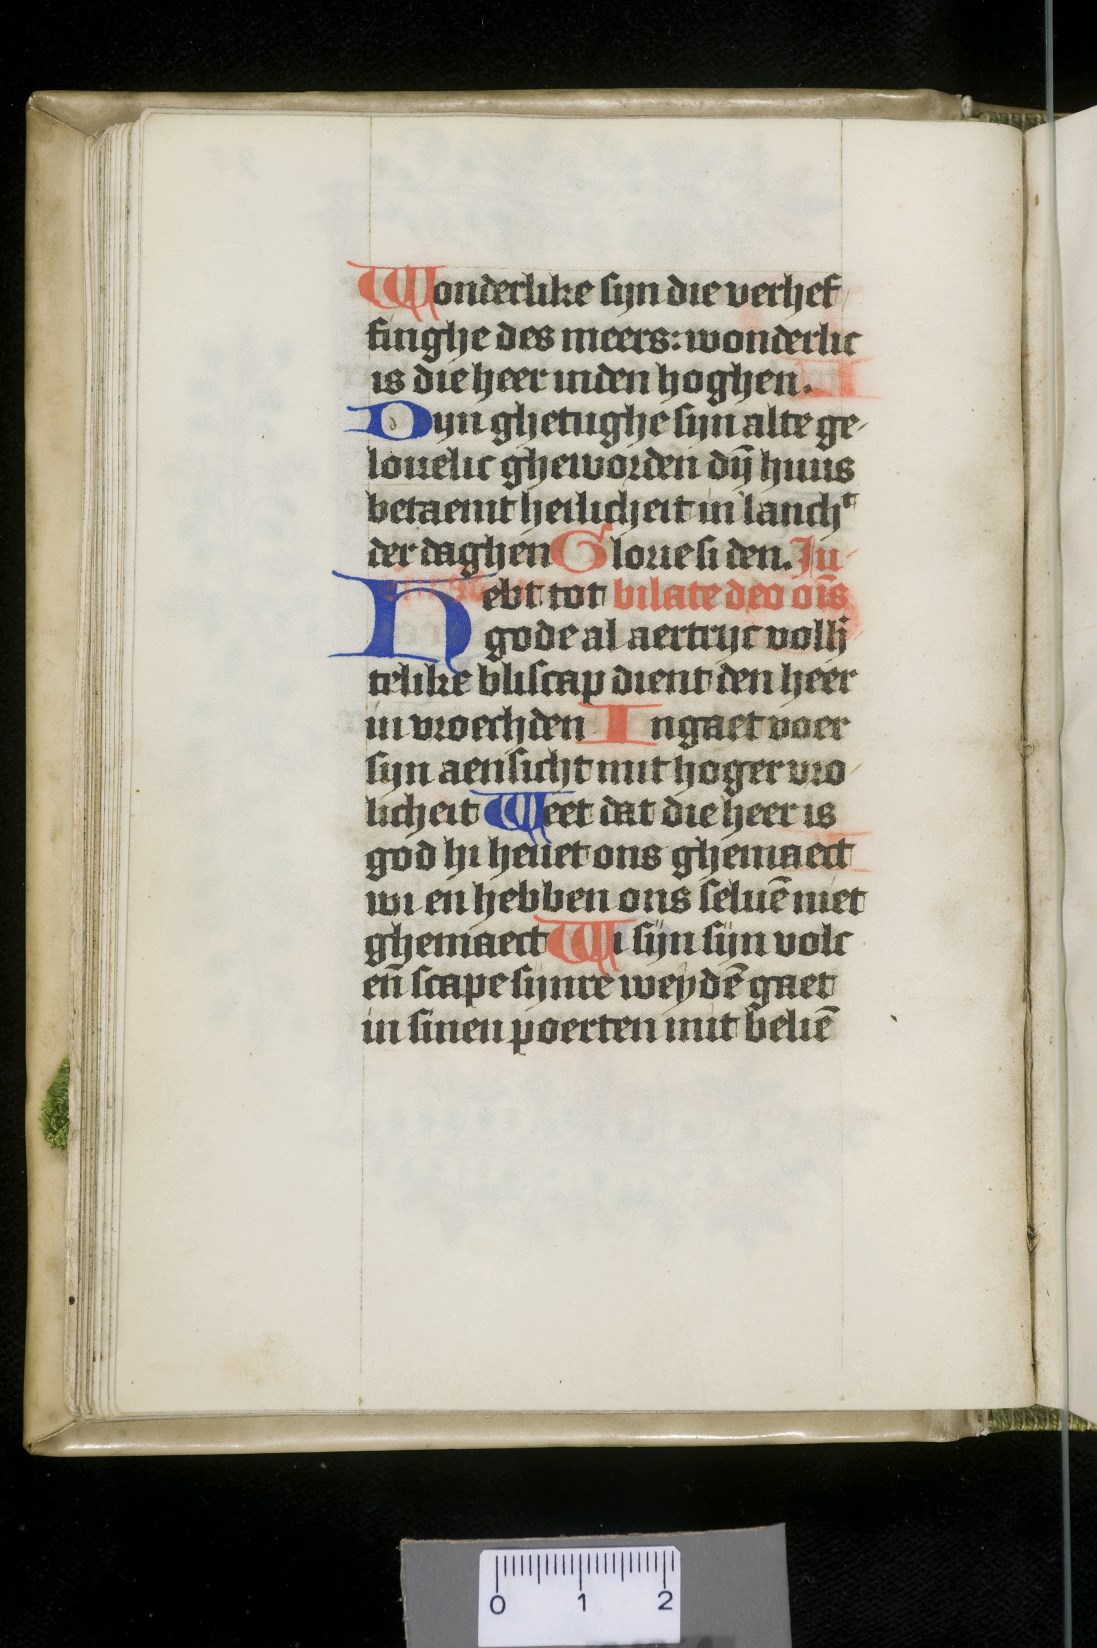 Wonderlike sijn die verhef
finghe des meers: wonderlic
is die heer inden hoghen.
Dyn ghetughe sijn alte ge
louelic gheworden dij̄ huus
betaemt heilicheit in lancht
der daghen Glorie si den. Ju
Hebt tot bilate deo oīs
gode al aertrijc
telike bliscap dient den heer
in vroechden Ingaet voer
sijn aensicht mit hoger vro
licheit Weet dat die heer is
god hi heuet ons ghemaect
wi en hebben ons seluē niet
ghemaect Wi sijn sijn volc
en̄ scape sijnre weydē gaet
in sinen poerten mit beliē
0 1 2